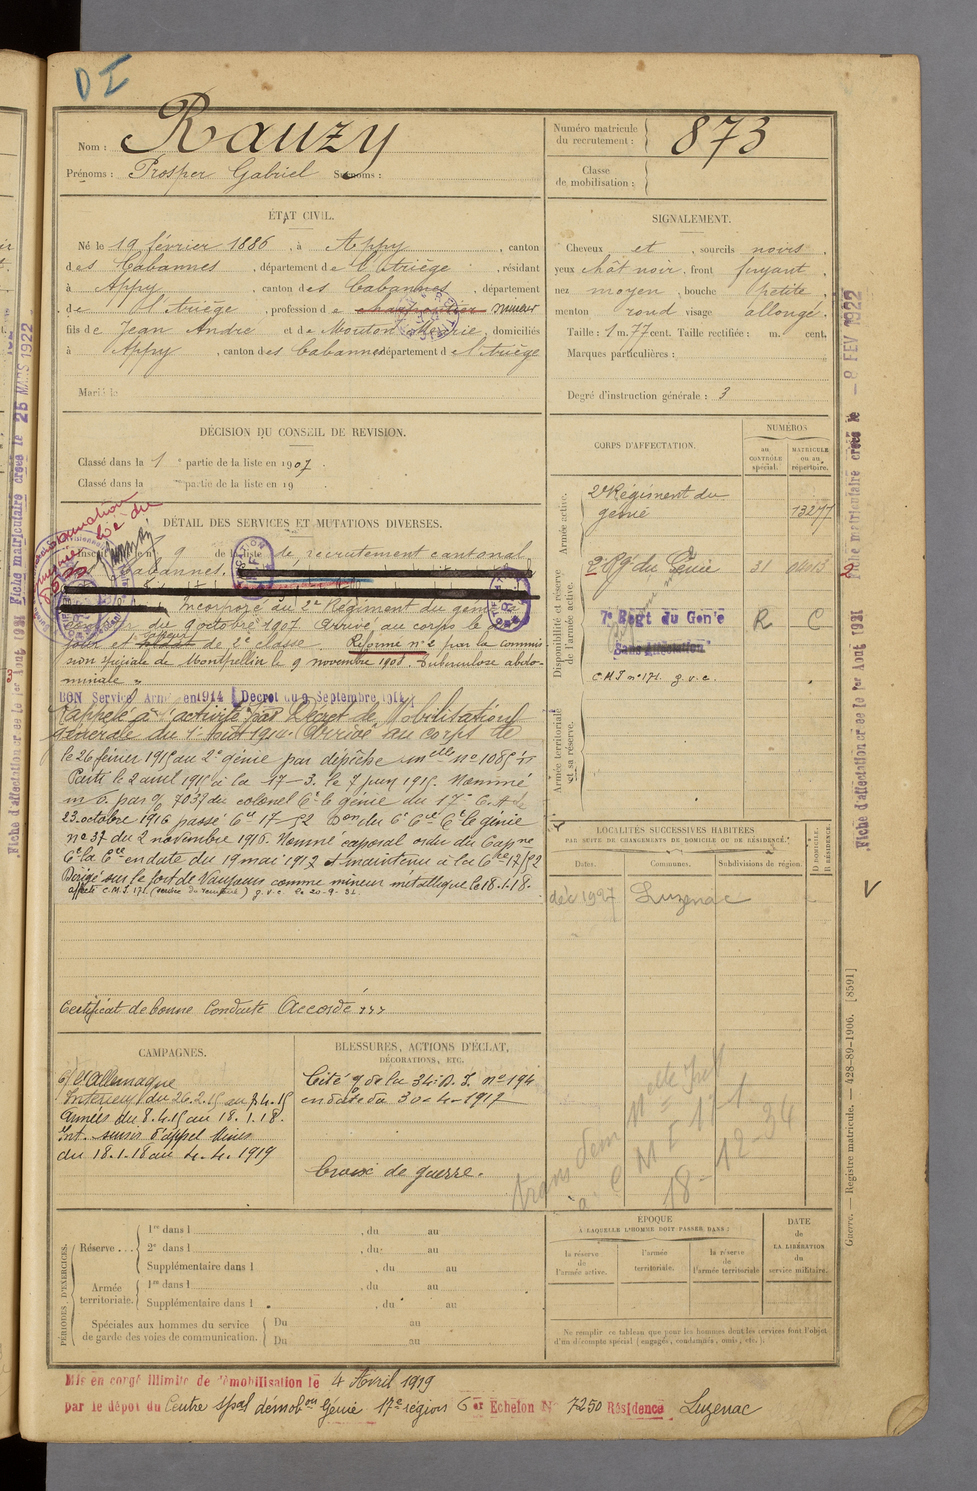 D I
Nom : Rauzy
Prénoms : Prosper Gabriel Surnoms :
Numéro matricule du recrutement : 873
Classe de mobilisation :
ÉTAT CIVIL.
Né le 19 février 1886, à Appy, canton
des Cabannes, département de l'Ariège, résidant
à Appy, canton des Cabannes, département
de l'Ariège, profession de mineur
fils de Jean André et de Mouton Marie, domiciliés
à Appy, canton des Cabannes département de l'Ariège
Marié le
SIGNALEMENT.
Cheveux et , sourcils noirs ,
yeux chât noir, front fuyant ,
nez moyen , bouche petite ,
menton rond visage allongé.
Taille : 1 m. 77 cent. Taille rectifiée : m. cent.
Marques particulières :
Degré d'instruction générale : 3
DÉCISION DU CONSEIL DE REVISION.
Classé dans la 1 e partie de la liste en 1907.
Classé dans la e partie de la liste en 19
DÉTAIL DES SERVICES ET MUTATIONS DIVERSES.
9 de la liste de recrutement cantonal
Cabannes.
Incorporé au 2e Régiment du génie
du 9 octobre 1907 Arrivé au corps le
jour et sapeur de 2e classe. Réformé n° 2 par la commis
sion spéciale de Montpellier le 9 novembre 1908. Tuberculose abdo-
minale "
BON Service Armé en 1914 Décret du 9 Septembre 1914
Rappelé à l'activité par Décret de Mobilisation
générale du 1er Août 1914. Arrivé au corps le
le 26 février 1915 au 2e génie par dépêche mlle n° 1085
Parti le 2 avril 1915 à la 17-3. le 7 juin 1915. Nommé
m o. par 7037 du colonel Ct le génie du 17e C.A. le
23 octobre 1916 passé Cie 17/52 Don du Ct le génie
n° 37 du 2 novembre 1916. Nommé caporal ordre du Capne
Ct la Cie en date du 19 mai 1917 et maintenu à la Cie 17/52
Dirigé sur le fort de Vaujours comme mineur métallique le 18.1.18.
affecté C.M.I. 171. g.v.c. le 20-9-31.
Certificat de bonne Conduite Accordé
CORPS D'AFFECTATION.
NUMÉROS
au CONTRÔLE spécial.
MATRICULE ou au répertoire.
Armée active.
2e Régiment du
génie 13277
Disponibilité et réserve de l'armée active.
2e Rgt du Génie 31
7e Regt du Génie R C
Sans Affectation
C.M.I n° 171. g.v.c.
Armée territoriale et sa réserve.
LOCALITÉS SUCCESSIVES HABITÉES
PAR SUITE DE CHANGEMENTS DE DOMICILE OU DE RÉSIDENCE.
Dates. Communes. Subdivisions de région. D DOMICILE. R RÉSIDENCE.
déc 1927 Luzenac
CAMPAGNES.
C/ l'Allemagne
Intérieur du 26.2.15 au 7.4.15
Armées du 8.4.15 au 18.1.18.
Int. sursis d'appel Mines
du 18.1.18 au 4.4.1919
BLESSURES, ACTIONS D'ÉCLAT,
DÉCORATIONS, ETC.
Cité de la 34e D.I. n° 194
en date du 30-4-1917
Croix de guerre.
C M I 171
18-12-34
PÉRIODES D'EXERCICES.
Réserve... 1re dans l , du au
2e dans l , du au
Supplémentaire dans l , du au
Armée territoriale. 1re dans l , du au
Supplémentaire dans l , du au
Spéciales aux hommes du service de garde des voies de communication. Du au
Du au
ÉPOQUE
À LAQUELLE L'HOMME DOIT PASSER DANS :
la réserve de l'armée active.
l'armée territoriale.
la réserve de l'armée territoriale
DATE de LA LIBÉRATION du service militaire.
Ne remplir ce tableau que pour les hommes dont les services font l'objet
d'un décompte spécial (engagés, condamnés, omis, etc.).
Mis en congé illimité de démobilisation le 4 Avril 1919
par le dépôt du Centre Spal démobon Génie 17e région 6 er Echelon N° 7250 Résidence Luzenac
Guerre. — Registre matricule. — 428-89-1906. [8591]
Fiche d'affectation créée le 1er Août 1921 Fiche matriculaire créée le - 8 FEV 1922
Fiche d'affectation créée le 1er Août 1921 Fiche matriculaire créée le 25 MARS 1922